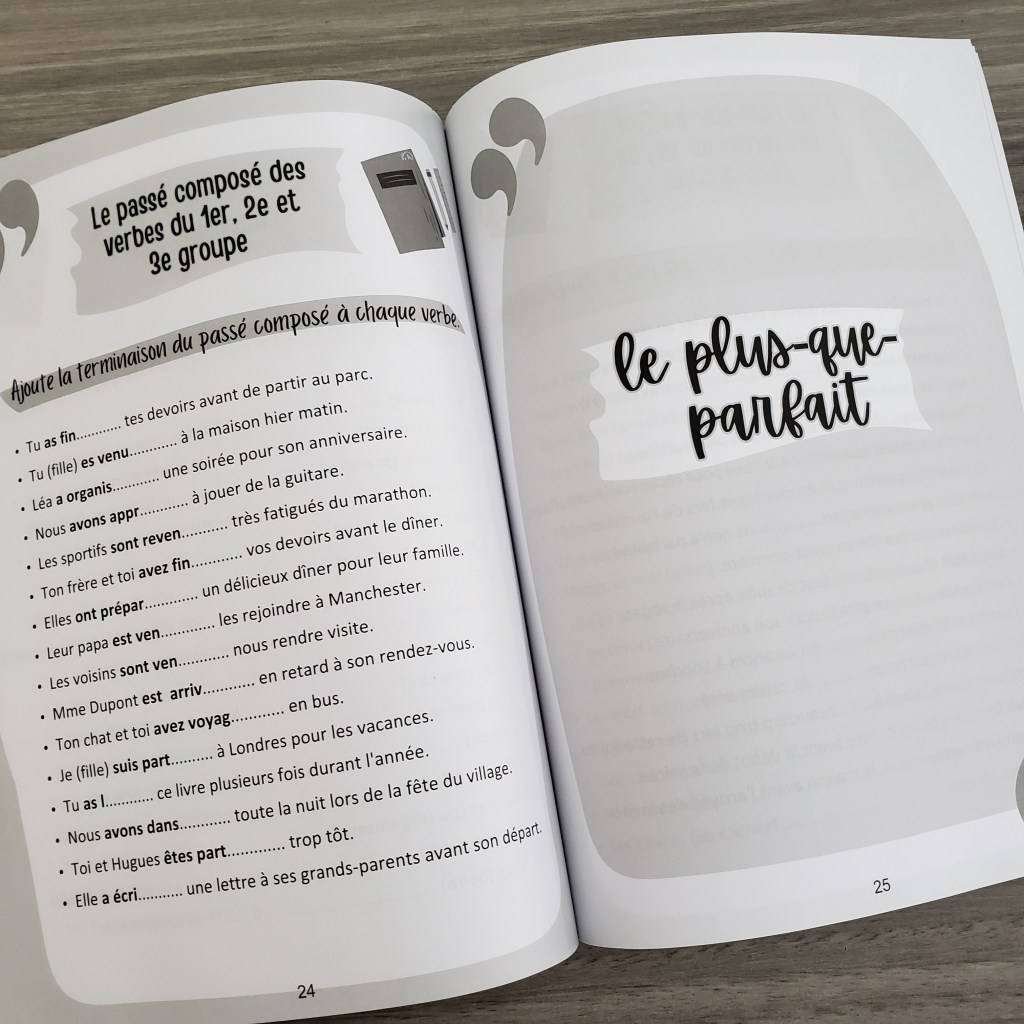 Le passé composé des
verbes du 1er, 2e et
3e groupe
Ajoute la terminaison du passé composé à chaque verbe.
• Tu as fin........... tes devoirs avant de partir au parc.
• Tu (fille) es venu........... à la maison hier matin.
• Léa a organis........... une soirée pour son anniversaire.
• Nous avons appr........... à jouer de la guitare.
• Les sportifs sont reven........... très fatigués du marathon.
• Ton frère et toi avez fin............ vos devoirs avant le dîner.
• Elles ont prépar............ un délicieux dîner pour leur famille.
• Leur papa est ven............ les rejoindre à Manchester.
• Les voisins sont ven............ nous rendre visite.
• Mme Dupont est arriv............ en retard à son rendez-vous.
• Ton chat et toi avez voyag............ en bus.
• Je (fille) suis part.......... à Londres pour les vacances.
• Tu as l........... ce livre plusieurs fois durant l'année.
• Nous avons dans............ toute la nuit lors de la fête du village.
• Toi et Hugues êtes part............. trop tôt.
• Elle a écri.......... une lettre à ses grands-parents avant son départ.
24
le plus-que-
parfait
25